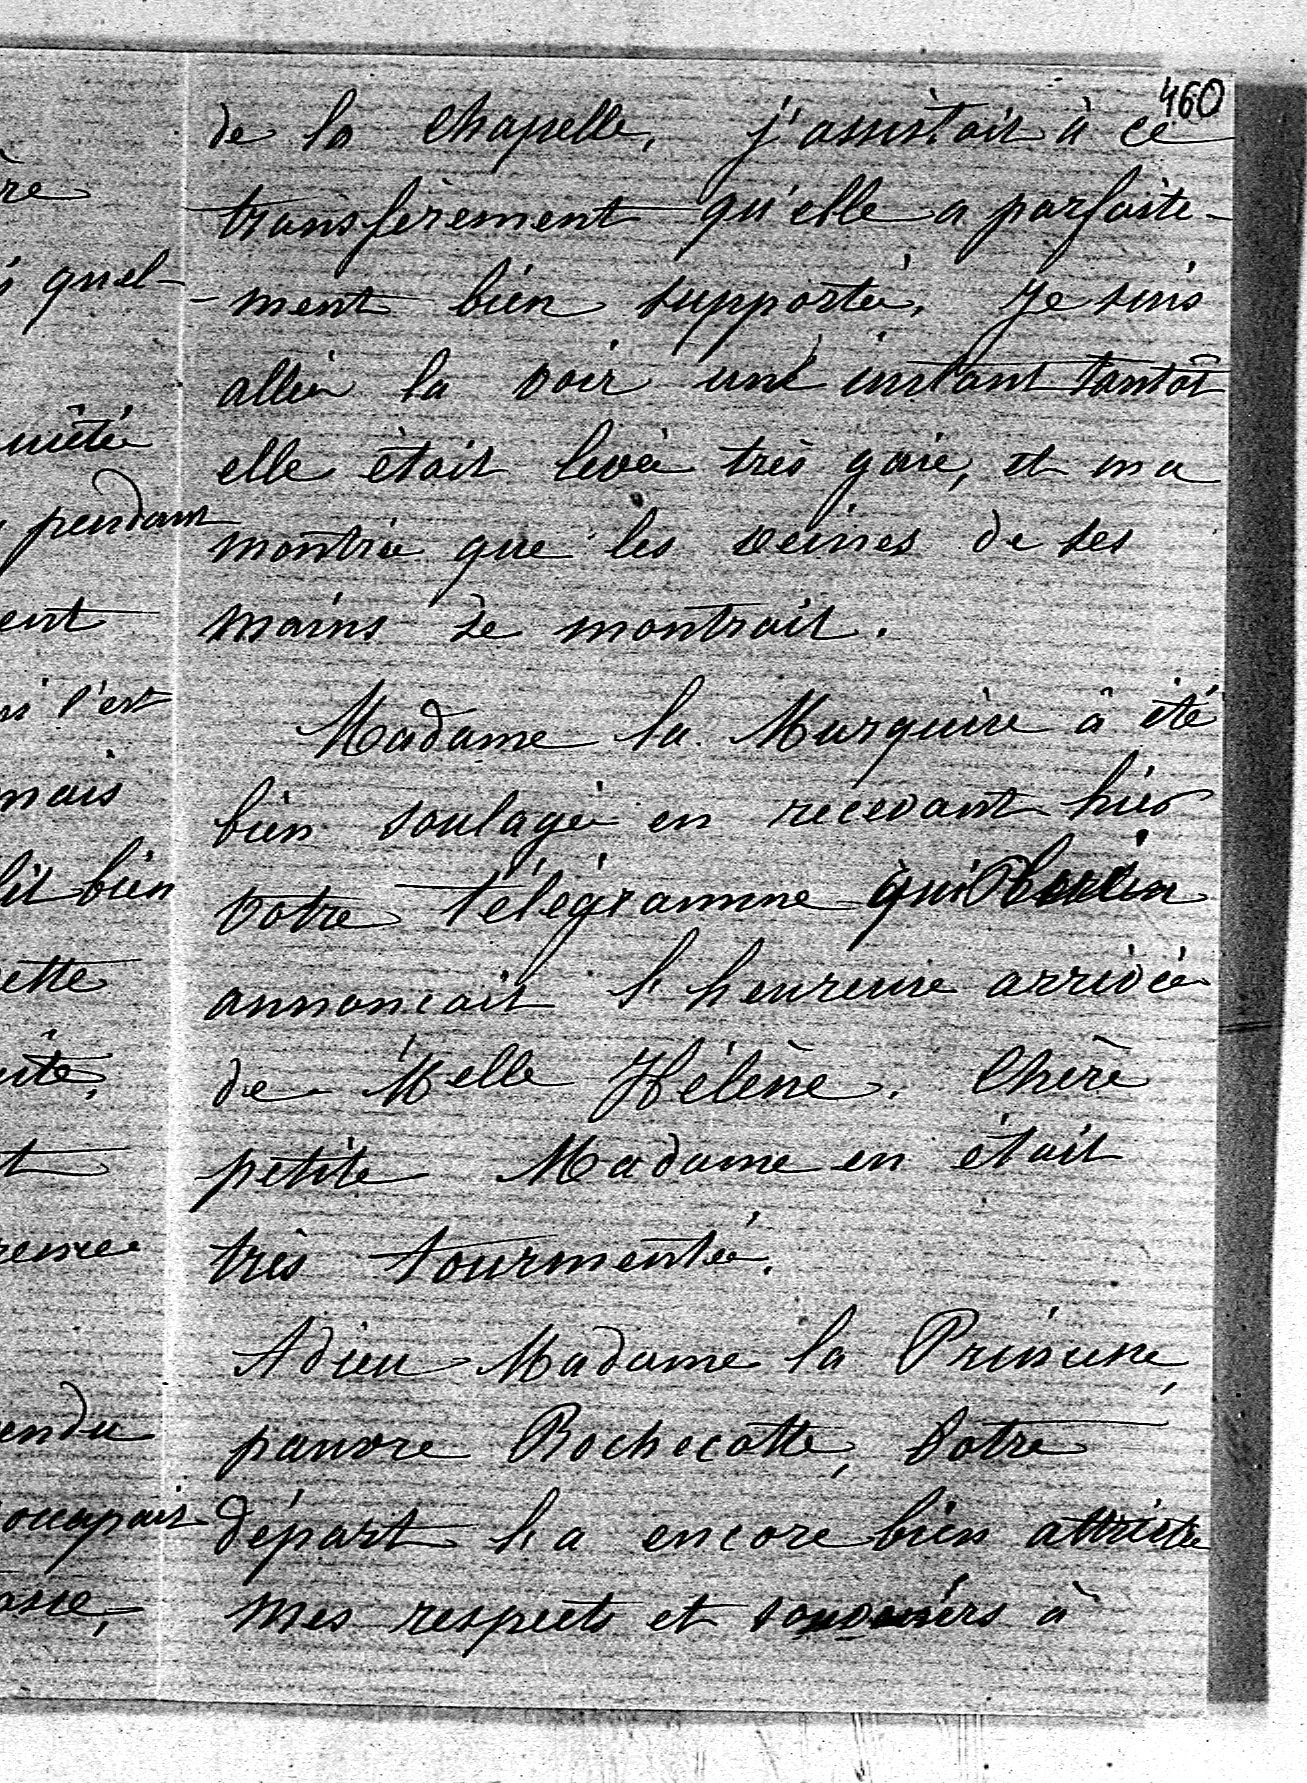 460
de la chapelle, j'assistait à ce
transfèrement qu'elle a parfaite-
-ment bien supportée, Je suis
allée la voir une instant tantôt
elle était levée très gaie, et ma
montrée que les veines de ses
mains se montrait.
Madame la Marquise à été
bien soulagée en recevant hier
votre télégramme qui
annoncait l'heureuse arrivée
de Melle Hélène. Chère
petite Madame en était
très tourmentée.
Adieu Madame la Princesse,
pauvre Rochecotte, votre
départ l'a encore bien attristé
mes respects et souvenirs à
re
quel-
uiétée
pendant
ent
l'est
mais
bien
ette
uite,
t
endu
occupait